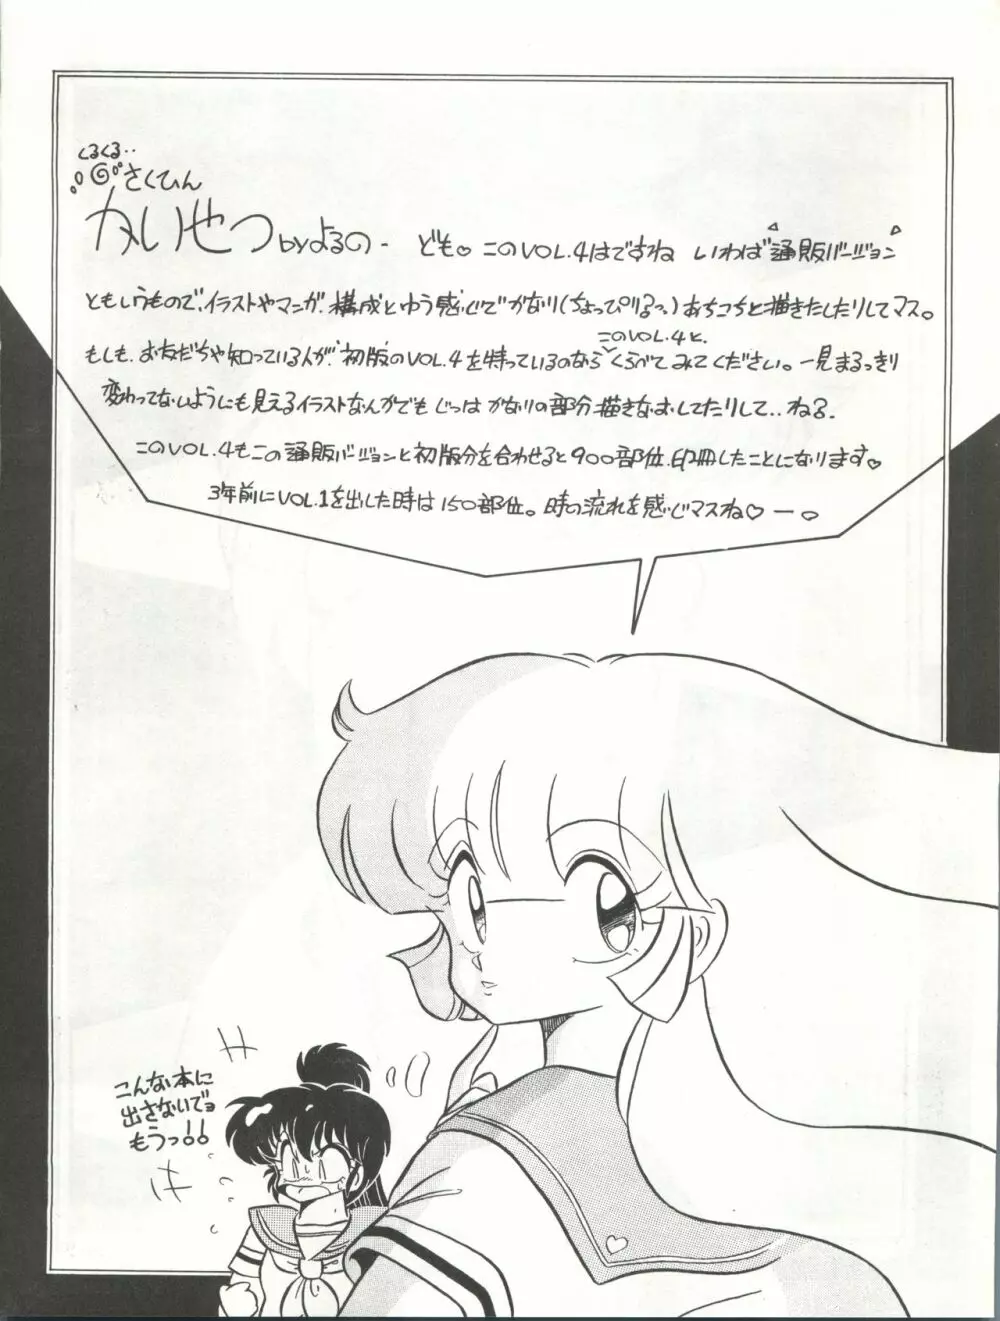 くるくる‥
さくひん
かいせつ byよるの― ども♡このVOL.4はですね いわば"通販バージョン
ともいうもので、イラストやマンガ、構成とゆう感じでかなり(ちょっぴり？っ)あちこちと描きたしたりしてマス。
もしも、お友だちや知っている人が、初版のVOL.4を持っているのなら このVOL.4と、くらべてみてください。一見まるっきり
変わってないようにも見えるイラストなんかでもじつはかなりの部分描きなおしてたりして‥ねる.
このVOL.4もこの通販バージョンと初版分を合わせると900部位、印刷したことになります♡
3年前にVOL.1を出した時は150部位。時の流れを感じマスね♡ー。
こんな本に
出さないでョ
もうっ!!